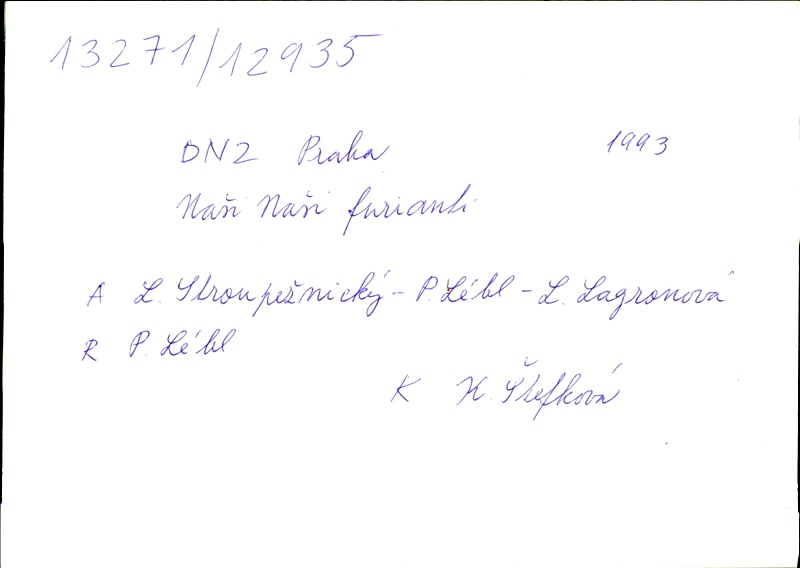 13271/12935
DNZ Praha 1993
Naši Naši furianti
A L. Stroupežnický - P. Lébl - L. Lagronová
R P. Lébl
K K. Štefková